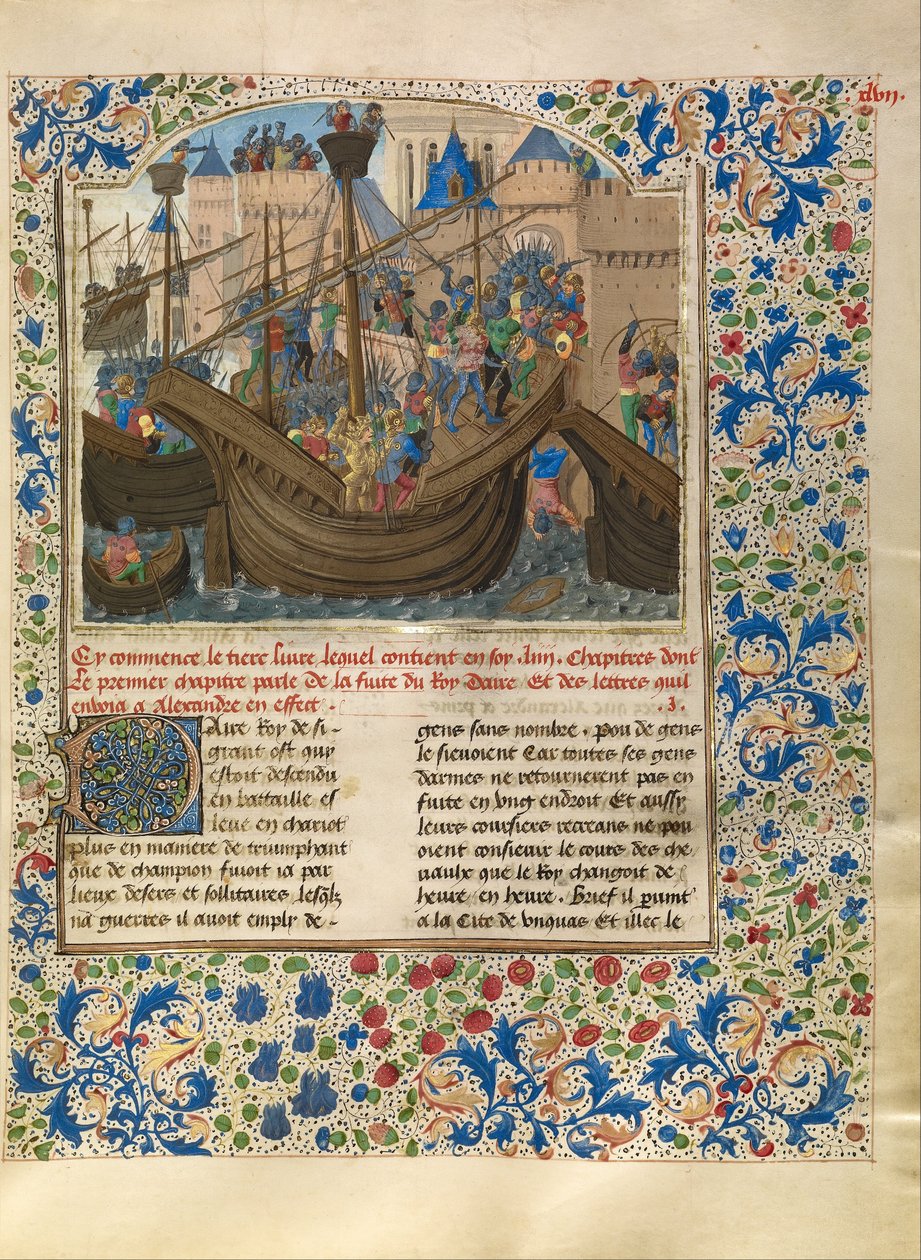 .xlvij.
Cy commence le tierc liure lequel contient en soy .liiij. Chapitres dont
Le premier chapitre parle de la fuite du Roy Daire Et des lettres quil
enuoia a Alexandre en effect .I.
Aire Roy de si
grant ost quy
estoit descendu
en battaille es
leue en chariot
plus en maniere de triumphant
que de champion fuioit ia par
lieux desers et sollitaires lesqlz
na guerres il auoit emply de
gens sans nombre . Pou de gens
le sieuoient Car toutes ses gens
darmes ne retournerent pas en
fuite en vng endroit Et aussy
leurs coursiers recreans ne pou
oient consieuir le cours des che
uaulx que le Roy changoit de
heure en heure . Brief il paruint
a la Cite de vnquas Et illec le